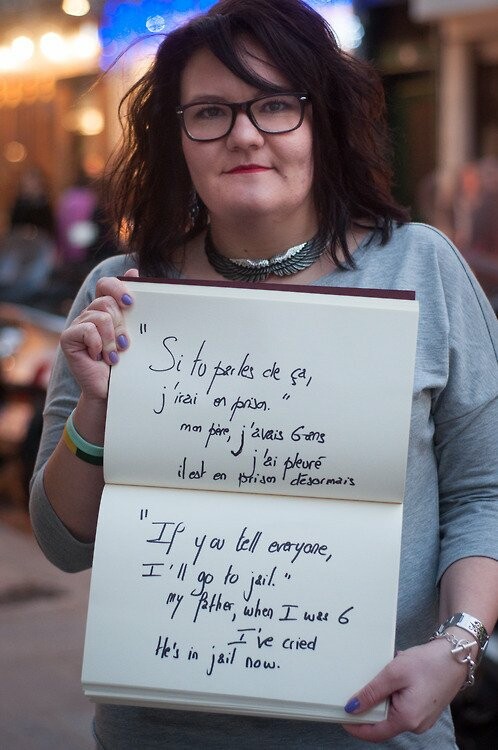 "Si tu parles de ça,
j'irai en prison."
mon père, j'avais 6 ans
j'ai pleuré
il est en prison désormais
"If you tell everyone,
I'll go to jail."
my father, when I was 6
I've cried
He's in jail now.